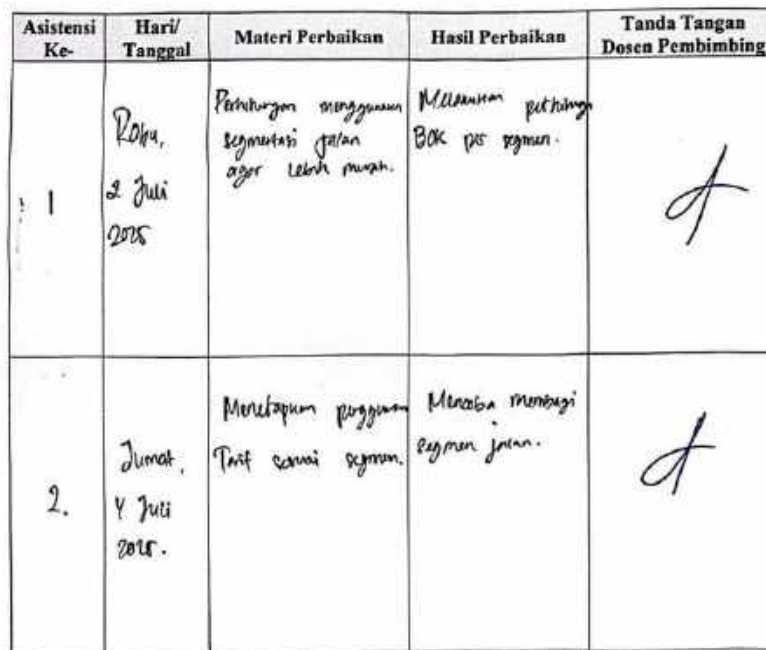 Asistensi Ke-
Hari/ Tanggal
Materi Perbaikan
Hasil Perbaikan
Tanda Tangan Dosen Pembimbing
1
Rabu,
2 Juli
2025
Perhitungan menggunakan
segmentasi jalan
agar lebih murah.
Melakukan
BOK per segmen.
2.
Jumat,
4 Juli
2025.
Menetapkan
Tarif sesuai segmen.
Mencoba membagi
segmen jalan.